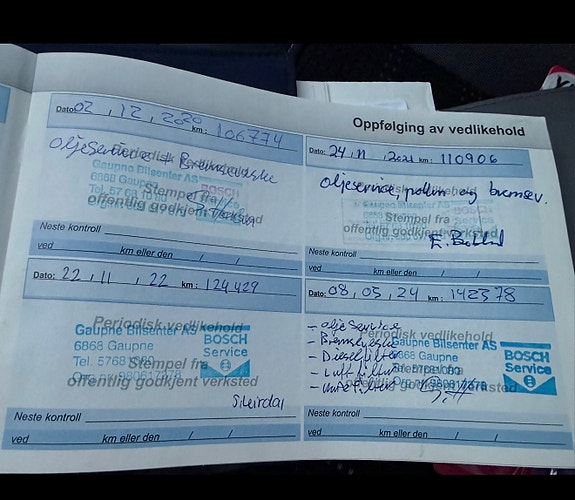 Oppfølging av vedlikehold
Dato: 02 , 12 , 2020 km : 106774
Oljeservice + Bremsevæske
Periodisk vedlikehold
Gaupne Bilsenter AS
6868 Gaupne
BOSCH
Stempel fra
offentlig godkjent verksted
Neste kontroll
ved km eller den / /
Dato: 24 11 2021 km : 110906
Oljeservice, pollen og bremsev.
Stempel fra
offentlig godkjent verksted
Neste kontroll
ved km eller den / /
Dato: 22 , 11 , 22 km : 124429
Periodisk vedlikehold
Gaupne Bilsenter AS
6868 Gaupne
BOSCH
Service
Stempel fra
offentlig godkjent verksted
Neste kontroll
ved km eller den / /
Dato: 08, 05, 24 km : 142378
- olje service
Periodisk vedlikehold
- Bremsevæske
Gaupne Bilsenter AS
- Dieselfilter
6868 Gaupne
BOSCH
Service
- Luftfilter
Stempel fra
offentlig godkjent verksted
Neste kontroll
ved km eller den / /